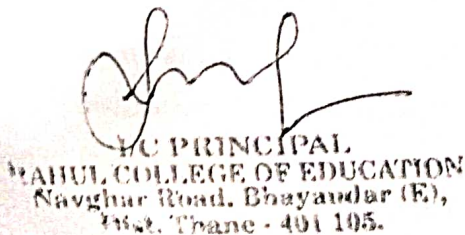 I/C PRINCIPAL
RAHUL COLLEGE OF EDUCATION
Navghar Road, Bhayandar (E),
Dist. Thane - 401 105.